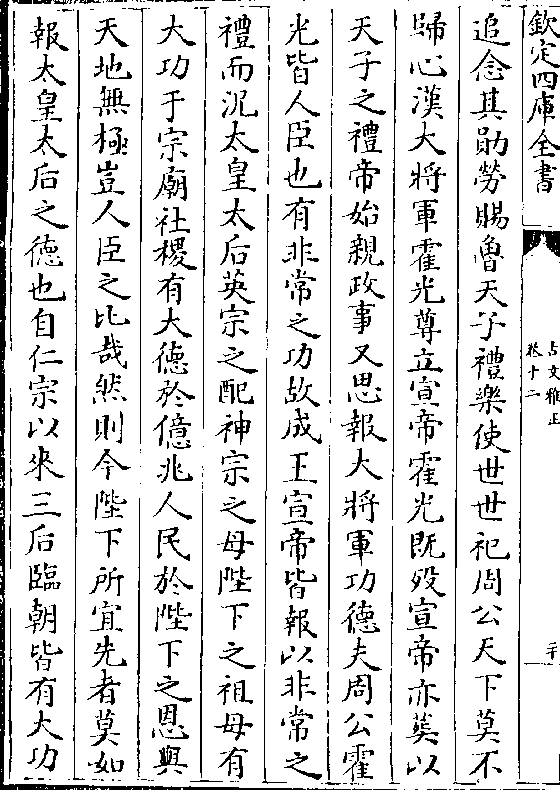 欽定四庫全書
古文雅正
卷十二
二十
追念其勛勞賜魯天子禮樂使世世祀周公天下莫不
歸心漢大將軍霍光尊立宣帝霍光既歿宣帝亦葬以
天子之禮帝始親政事又思報大將軍功德夫周公霍
光皆人臣也有非常之功故成王宣帝皆報以非常之
禮而況太皇太后英宗之配神宗之母陛下之祖母有
大功于宗廟社稷有大德於億兆人民於陛下之恩與
天地無極豈人臣之比哉然則今陛下所宜先者莫如
報太皇太后之德也自仁宗以來三后臨朝皆有大功